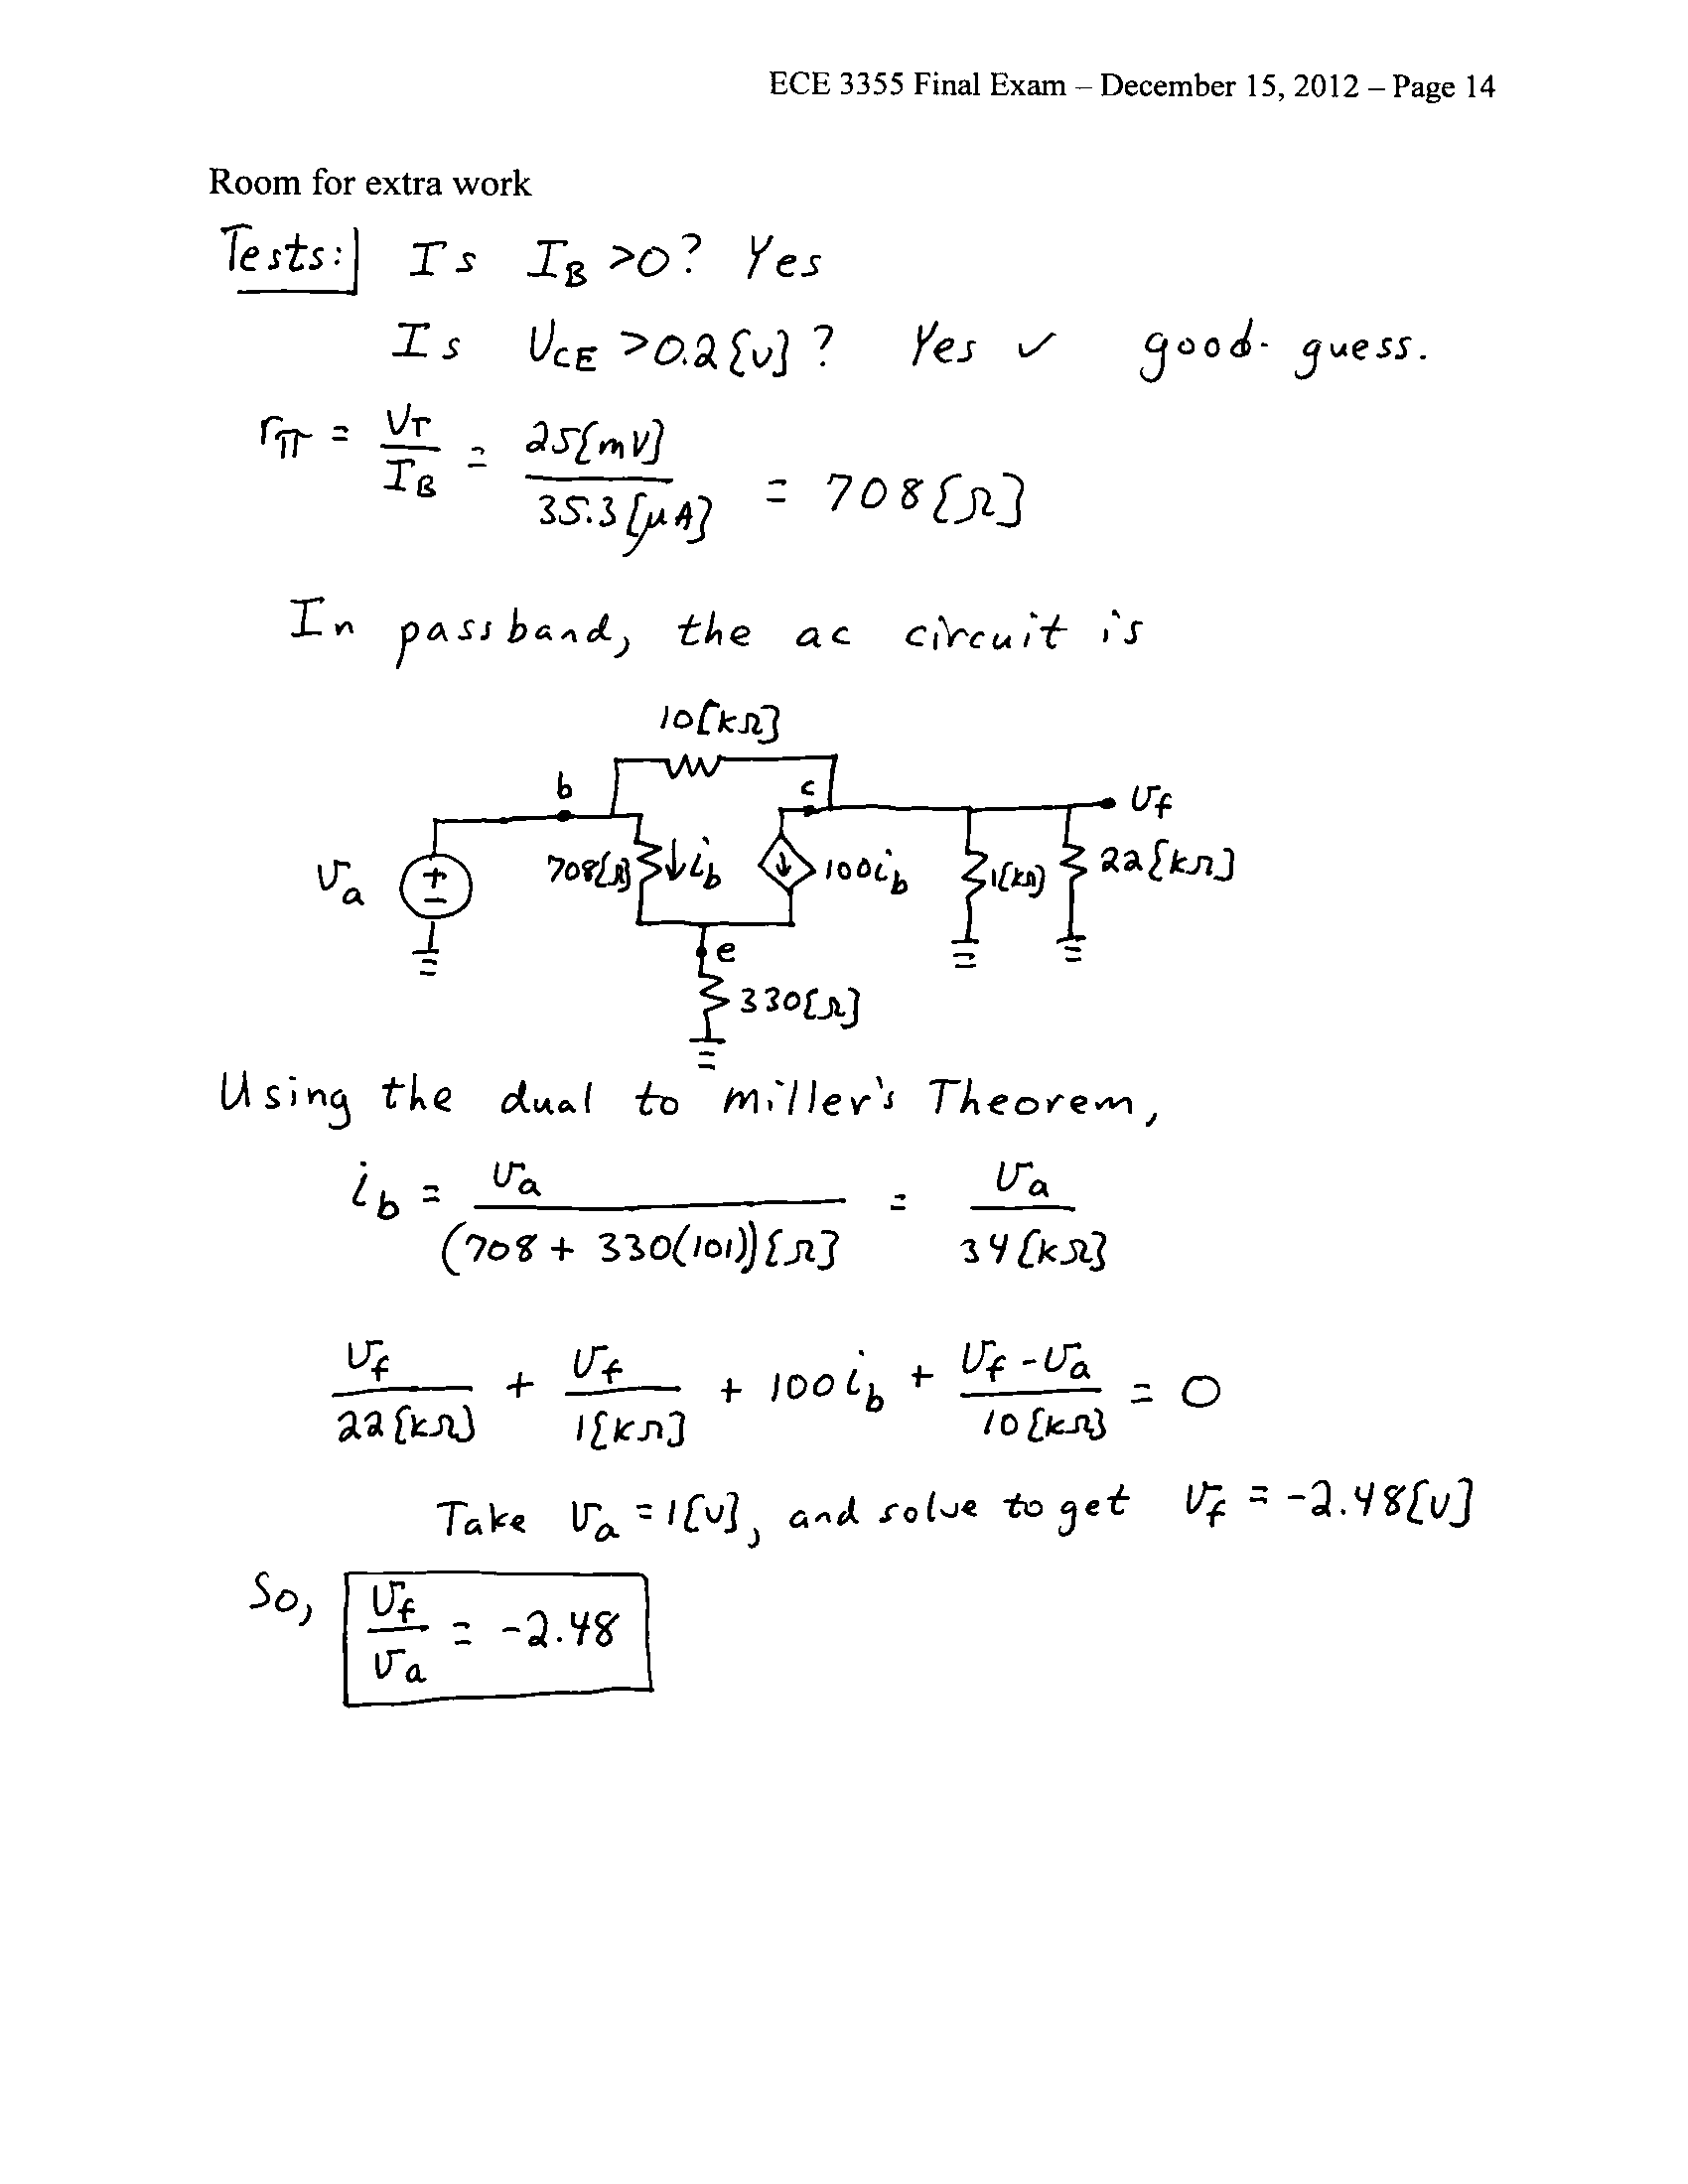 ECE 3355 Final Exam – December 15, 2012 – Page 14
Room for extra work
Tests: Is I_B >0? Yes
Is V_CE >0.2[V]? Yes ✓ good guess.
r_π = V_T / I_B = 25[mV] / 35.3[μA] = 708[Ω]
In passband, the ac circuit is
10[kΩ]
b c v_f
v_a + − 708[Ω] ↓i_b 100i_b 1[kΩ] 22[kΩ]
e
330[Ω]
Using the dual to Miller's Theorem,
i_b = v_a / (708 + 330(101))[Ω] = v_a / 34[kΩ]
v_f / 22[kΩ] + v_f / 1[kΩ] + 100i_b + (v_f - v_a) / 10[kΩ] = 0
Take v_a = 1[V], and solve to get v_f = -2.48[V]
So, v_f / v_a = -2.48